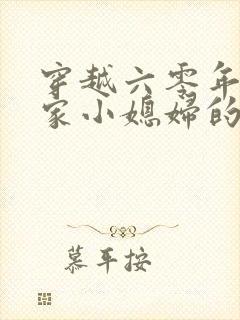 穿越六零年
家小媳妇的
慕平按